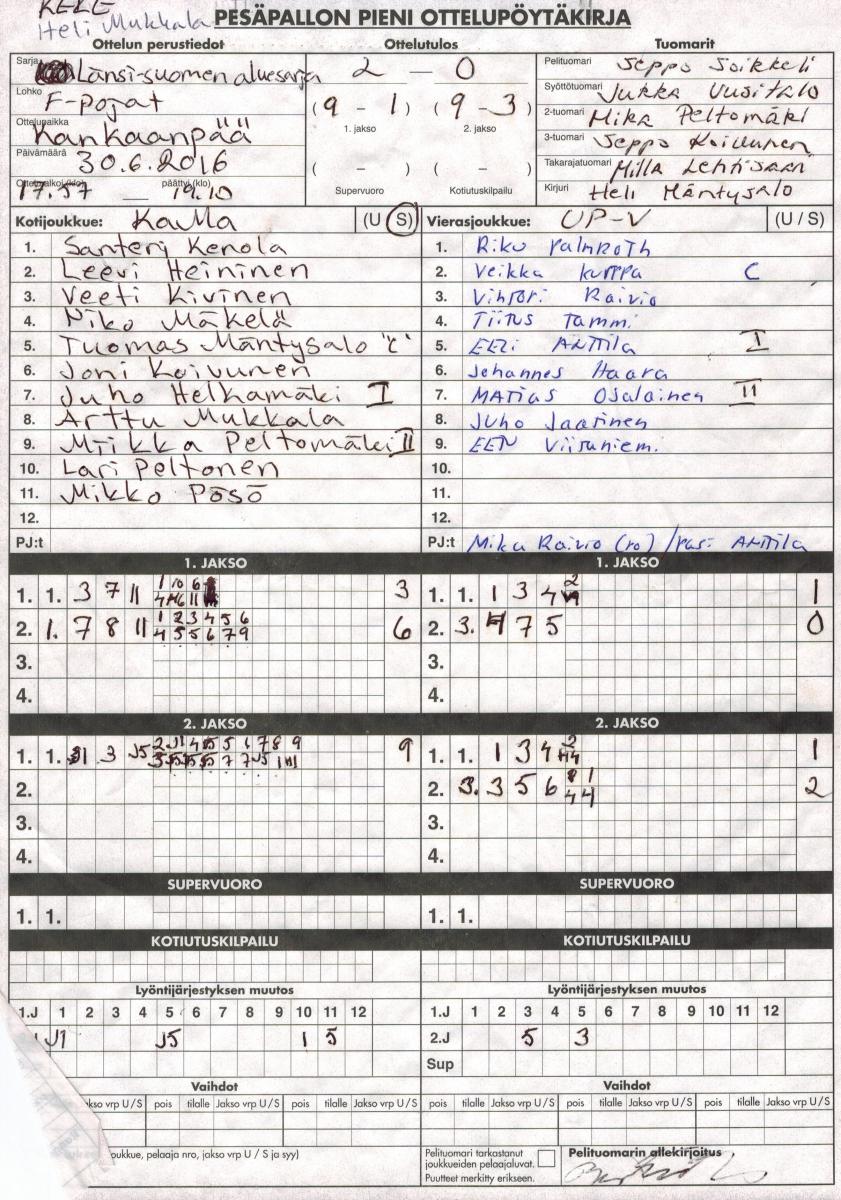 KELE
Heli Mukkala
PESÄPALLON PIENI OTTELUPÖYTÄKIRJA
Ottelun perustiedot
Sarja Länsi-suomen aluesarja
Lohko F-pojat
Ottelupaikka Kankaanpää
Päivämäärä 30.6.2016
Ottelu alkoi (klo) päättyi (klo)
17.57 — 19.10
Ottelutulos
2 — 0
(9 - 1) (9 - 3)
1. jakso 2. jakso
( - ) ( - )
Supervuoro Kotiutuskilpailu
Tuomarit
Pelituomari Seppo Soikkeli
Syöttötuomari Jukka Uusitalo
2-tuomari Mika Peltomäki
3-tuomari Seppo Koivunen
Takarajatuomari Milla Lehtisaari
Kirjuri Heli Mäntysalo
Kotijoukkue: KaMa (U / S)
1. Santeri Kenola
2. Leevi Heininen
3. Veeti Kivinen
4. Niko Mäkelä
5. Tuomas Mäntysalo "C"
6. Joni Koivunen
7. Juho Helkamäki I
8. Arttu Mukkala
9. Miikka Peltomäki II
10. Lari Peltonen
11. Mikko Pösö
12.
PJ:t
Vierasjoukkue: UP-V (U / S)
1. Riku Palmroth
2. Veikka Kurppa C
3. Vihtori Raivio
4. Tiitus Tammi
5. EEli Anttila I
6. Johannes Haara
7. MATIAS Osalainen II
8. Juho Jaarinen
9. EEN Viiruniemi
10.
11.
12.
PJ:t Mika Raivio (vo) / Pasi Anttila
1. JAKSO
1. 1. 3 7 11 3
2. 1. 7 8 11 1 2 3 4 5 6 6
4 5 5 6 7 9
3.
4.
1. JAKSO
1. 1. 1 3 4 2 1
2. 3. 7 5 0
3.
4.
2. JAKSO
1. 1. 3 J5 9
2.
3.
4.
2. JAKSO
1. 1. 1 3 4 2 1
2. 3. 3 5 6 1 2
4 4
3.
4.
SUPERVUORO
1. 1.
SUPERVUORO
1. 1.
KOTIUTUSKILPAILU
KOTIUTUSKILPAILU
Lyöntijärjestyksen muutos
1.J 1 2 3 4 5 6 7 8 9 10 11 12
J1 J5 1 5
Lyöntijärjestyksen muutos
1.J 1 2 3 4 5 6 7 8 9 10 11 12
2.J 5 3
Sup
Vaihdot
Jakso vrp U / S pois tilalle Jakso vrp U / S pois tilalle Jakso vrp U / S
Vaihdot
pois tilalle Jakso vrp U / S pois tilalle Jakso vrp U / S pois tilalle Jakso vrp U / S
oukkue, pelaaja nro, jakso vrp U / S ja syy)
Pelituomari tarkastanut
joukkueiden pelaajaluvat.
Puutteet merkitty erikseen.
Pelituomarin allekirjoitus